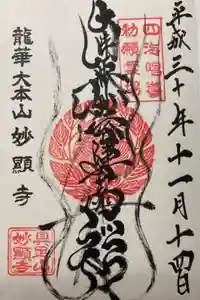 平成三十年十一月十四日
四海唱導
勅願宗山
南無妙法蓮華経
龍華大本山妙顕寺
具足山
妙顕寺